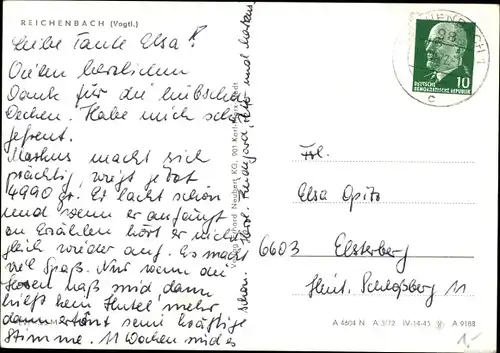 REICHENBACH (Vogtl.)
Liebe Tante Elsa!
Vielen herzlichen
Dank für die hübschen
Decken. Habe mich sehr
gefreut.
Markus macht sich
prächtig, wiegt jetzt
4990 gr. Er lacht schon
und wenn er anfängt
zu Erzählen hört er nicht
gleich wieder auf. Es macht
viel Spaß. Nur wenn die
Hosen naß sind dann
hilft kein Hutel mehr
dann ertönt seine kräftige
Stimme. 11 Wochen wird es
schon. Herzl. und Markus
Verlag Erhard Neubert KG, 901 Karl-Marx-Stadt
DEUTSCHE
DEMOKRATISCHE REPUBLIK
10
c
Frl.
Elsa Opitz
6603 Elsterberg
Hint. Schloßberg 11
A 4604 N A 3/72 IV-14-45 A 9188
A 1-